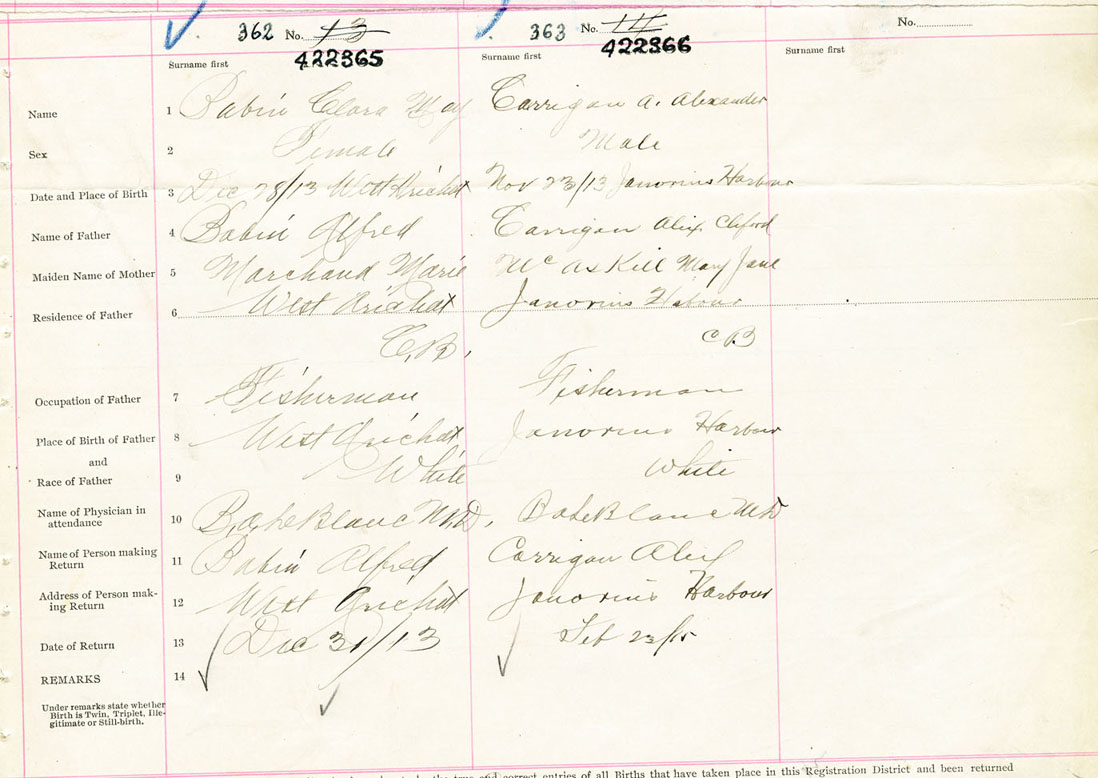 362 No. 13 363 No. 14 No.
422365 422366
Surname first Surname first Surname first
Name 1 Babin Clara May Carrigan A. Alexander
Sex 2 Female Male
Date and Place of Birth 3 Dec 28/13 West Arichat Nov 23/13 Janorins Harbour
Name of Father 4 Babin Alfred Carrigan Alix Cliford
Maiden Name of Mother 5 Marchand Marie McAskill Mary Jane
Residence of Father 6 West Arichat Janorins Habour
C.B. CB
Occupation of Father 7 Fisherman Fisherman
Place of Birth of Father 8 West Arichat Janorins Harbour
and
Race of Father 9 White White
Name of Physician in
attendance 10 B.A. LeBlanc M.D. BA LeBlanc MD
Name of Person making
Return 11 Babin Alfred Carrigan Alix
Address of Person mak-
ing Return 12 West Arichat Janorins Harbour
Date of Return 13 Dec 31/13 Feb 23/15
REMARKS 14
Under remarks state whether
Birth is Twin, Triplet, Ille-
gitimate or Still-birth.
the true and correct entries of all Births that have taken place in this Registration District and been returned